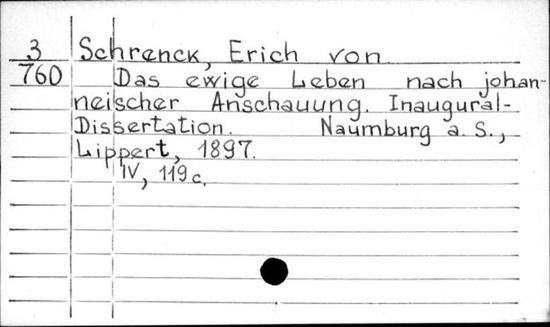 3 Schrenck, Erich von
760 Das ewige Leben nach johan-
neischer Anschauung. Inaugural-
Dissertation. Naumburg a. S.,
Lippert, 1897.
IV, 119 c.